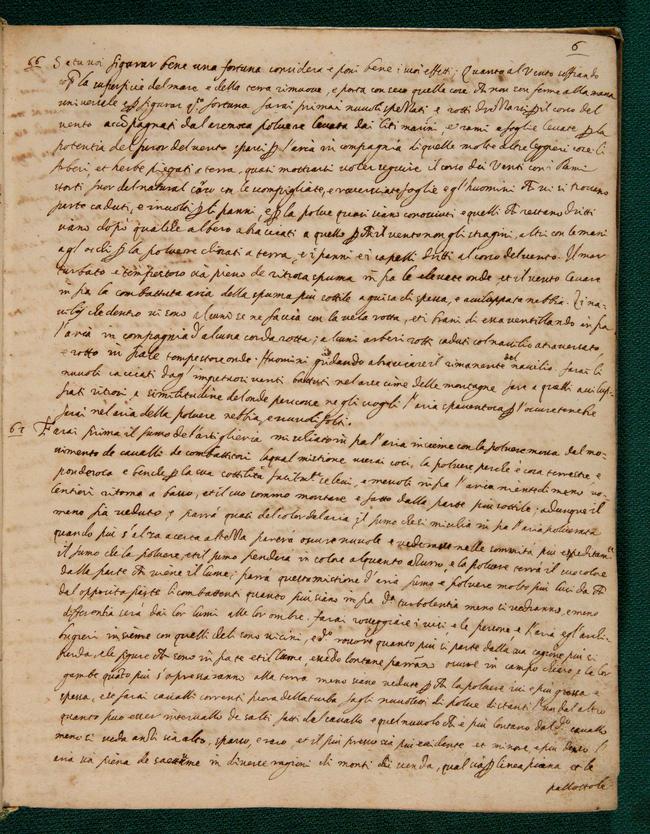 6
66 Se tu voi figurar bene una fortuna considera e poni bene i suoi effetti: Quanto al vento soffiando
la superficie del mare e della terra rimuove, e porta con seco quelle cose non son ferme alla massa
universale figurar fortuna farai prima i nuvoli spezzati e rotti il corso del
vento accompagnati dal arenosa polvere levata dai liti marini, e rami e foglie levate la
potentia del furor del vento sparsi l'aria in compagnia di quelle molte altre leggieri cose: li
Alberi, et herbe piegati a terra, quasi mostrarsi voler seguire il corso dei Venti con i Rami
storti fuor del natural corso con le scompigliate, e roversciate foglie e gl'huomini vi si trovono
parte caduti, e involti li panni, e la polve quasi siano sconosciuti e quelli restano dritti
siano dopo qualche albero abracciati a quello il vento non gli stragini, altri con le mani
agl'occhi la polvere chinati a terra, e i panni e i capelli dritti al corso del vento. Il mar
turbato e tempestoso sia pieno de ritrosa spuma in fra le elevate onde, et il vento levare
in fra la combattuta aria della spuma piu sottile a guisa di spessa, e aviluppata nebbia. Li na-
vilij che dentro vi sono alcuni se ne faccia con la vela rotta, et i brani di essa ventillando in fra
l'aria in compagnia d'alcuna corda rotta; alcuni arberi rotti caduti col navilio atraversato,
e rotto in fra le tempestose onde. Huomini gridando abracciare il rimanente del navilio. farai li
nuvoli cacciati dagl'impetuosi venti battuti nel alte cime delle montagne fare a quelli avilup-
pati ritrosi, a similitudine del onde percosse ne gli scogli l'aria spaventosa l'oscure tenebre
farai nel aria della polvere nebbia, e nuvoli folti.
67 Farai prima il fumo del artigliaria mischiato in fra l'aria insieme con la polvere mossa dal mo-
vimento de cavalli de combattitori laqual mistione userai cosi, la polvere perche è cosa terrestre, e
ponderosa e benche la sua sottilità facilmente si levi, e mescoli in fra l'aria nientedimeno vo-
lentieri ritorna a basso, et il suo sommo montare e fatto dalla parte piu sottile; adunque il
meno fia veduto, e parrà quasi del color dal aria; il fumo che si mischia in fra l'aria polverata
quando piu s'alza a certa altezza parera oscure nuvole e vederassi nelle sommità piu espeditamente
il fumo che la polvere, et il fumo penderà in colore alquanto azurro, e la polvere terrà il suo colore
dalla parte viene il lume; parrà questa mistione d'aria fumo e polvere molto piu lucida
dal opposita parte li combattenti quanto piu siano in fra detta turbolentia meno si vedranno, e meno
differentia sarà dai lor lumi alle lor ombre. farai rosseggiare i visi e le persone e l'aria e gl'archi-
bugieri insieme con quelli che li sono vicini, e detto rossore quanto piu si parte dalla sua cagione piu si
perda, e le figure sono in fra te et il lume, essendo lontane parranno oscure in campo chiaro, e le lor
gambe quanto piu s'apressaranno alla terra meno siano vedute la polvere ivi e piu grossa e
spessa, et se farai cavalli correnti fuora della turba fagli nuvoletti di polve distanti l'un dal altro
quanto puo esser intervallo de salti fatti dal cavallo e quel nuvolo è piu lontano dal detto cavallo
meno si veda anzi sia alto, sparso, e raro, et il piu presso sia piu evidente et minore, e piu denso l'
aria sia piena de saettume in diverse ragioni chi monti chi scenda, qual sia linea piana et le
pallottole